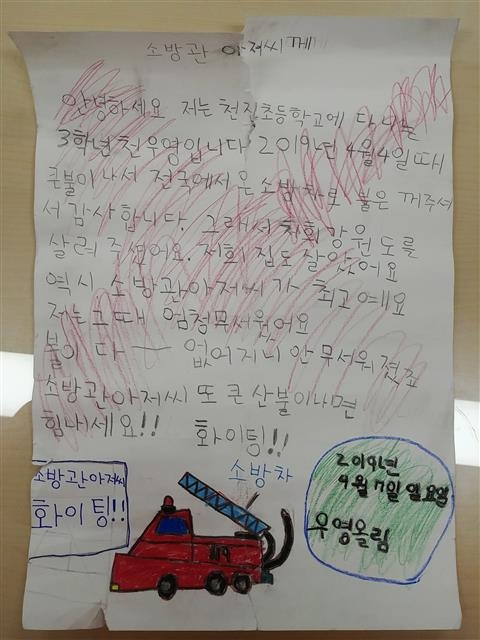 소방관 아저씨께
안녕하세요 저는 천진초등학교에 다니는
3학년 천우영입니다 2019년 4월4일때
큰불이나서 전국에서 온 소방차로 불은 꺼주셔
서 감사합니다. 그래서 저희 강원도를
살려 주셨어요. 저희 집도 살았어요
역시 소방관아저씨가 최고예요
저는 그때 엄청무서웠어요
불이 다ㅡ 없어지니 안무서워졌죠
소방관아저씨 또 큰 산불이나면
힘내세요!! 화이팅!!
소방차
소방관아저씨
화이팅!!
119
2019년
4월 7일 일요일
우영올림